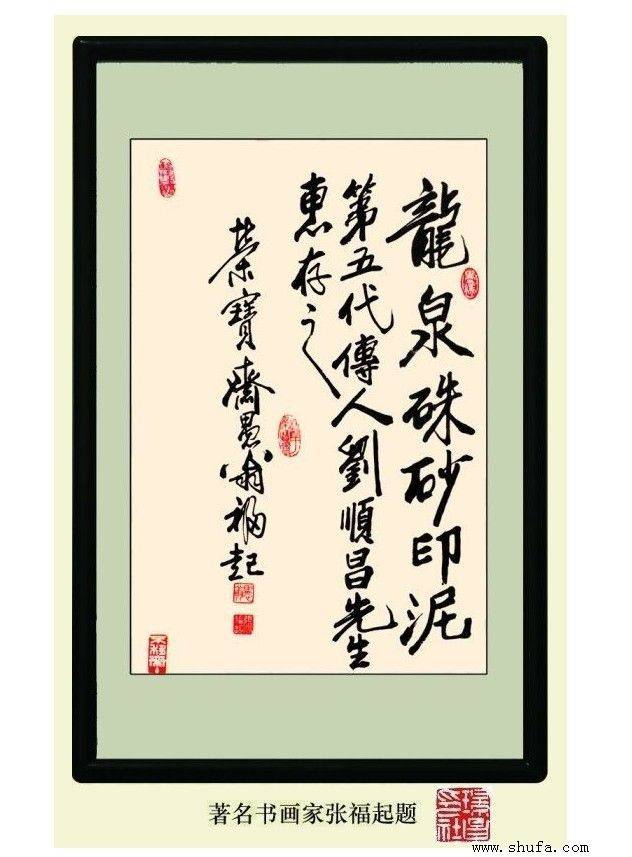 龍泉硃砂印泥
第五代傳人劉順昌先生
惠存之
榮寶齋愚翁福起
著名书画家张福起题
www.shufa.com